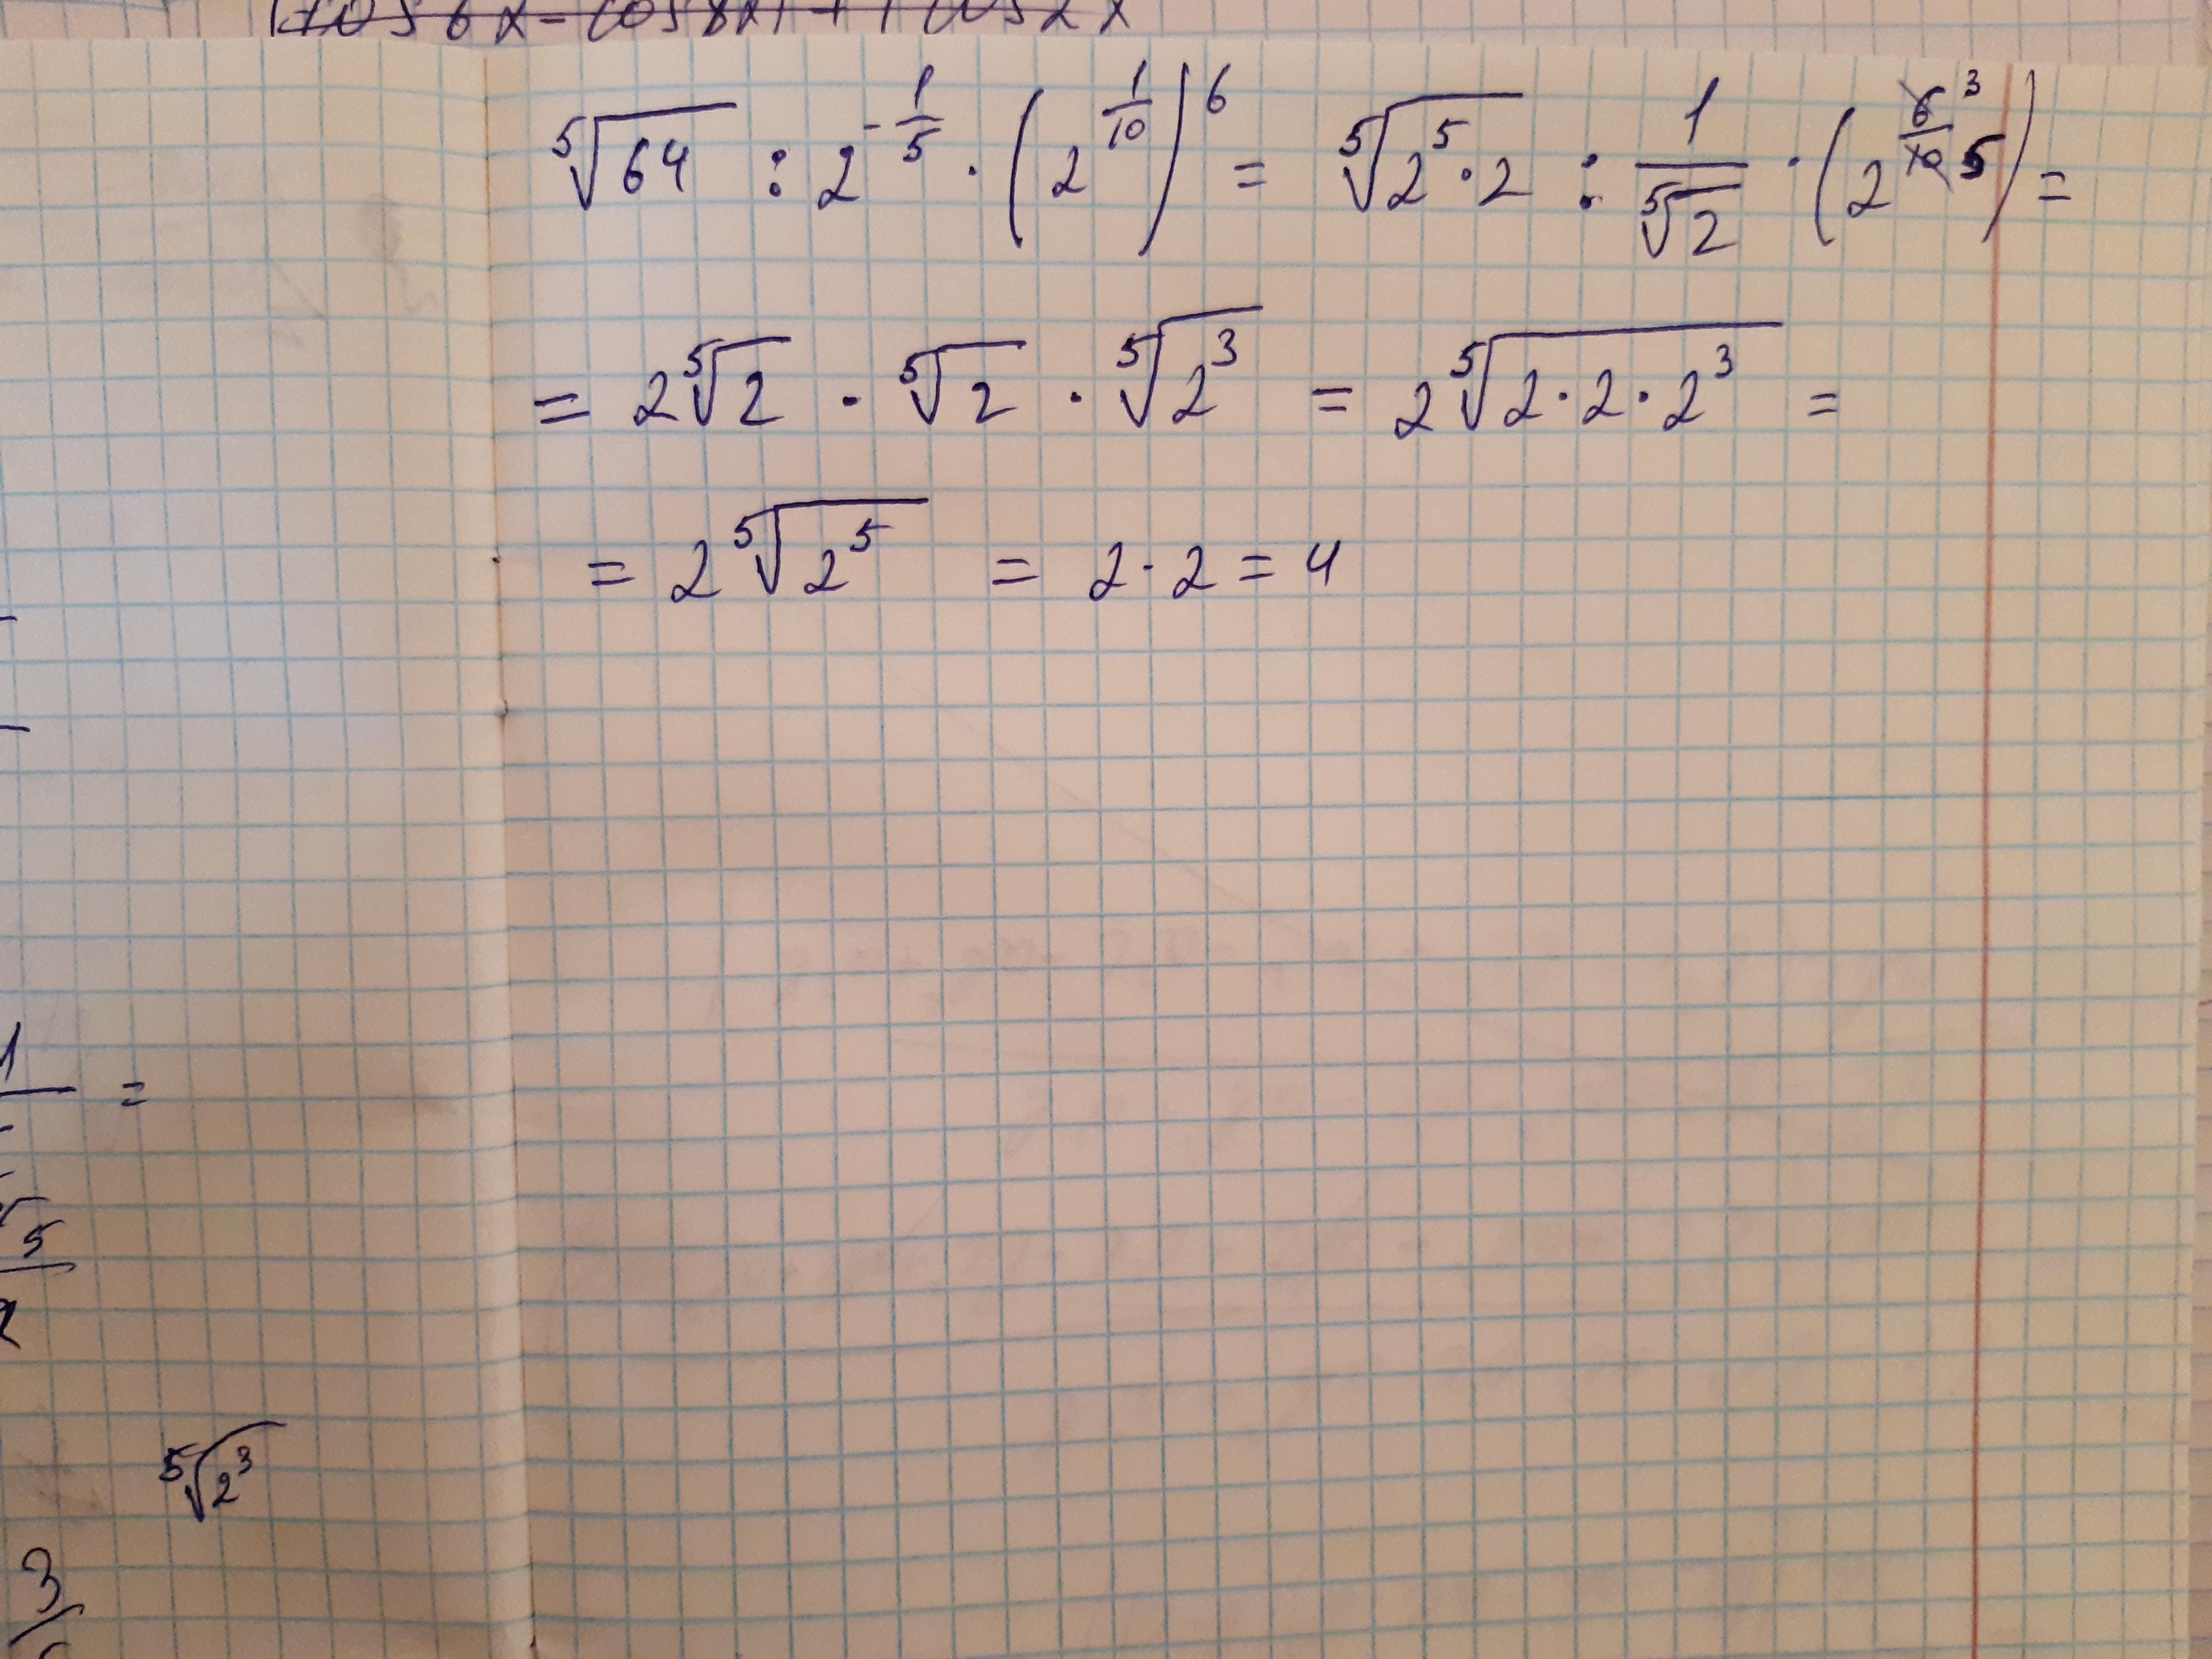 cos 6x - cos 8x + 1 cos 2x
⁵√64 : 2^(-1/5) · (2^(1/10))^6 = ⁵√(2^5 · 2) : 1/⁵√2 · (2^(6/10) 3 5) =
= 2⁵√2 · ⁵√2 · ⁵√(2^3) = 2⁵√(2·2·2^3) =
= 2⁵√(2^5) = 2·2 = 4
1 =
5
2
⁵√(2^3)
3